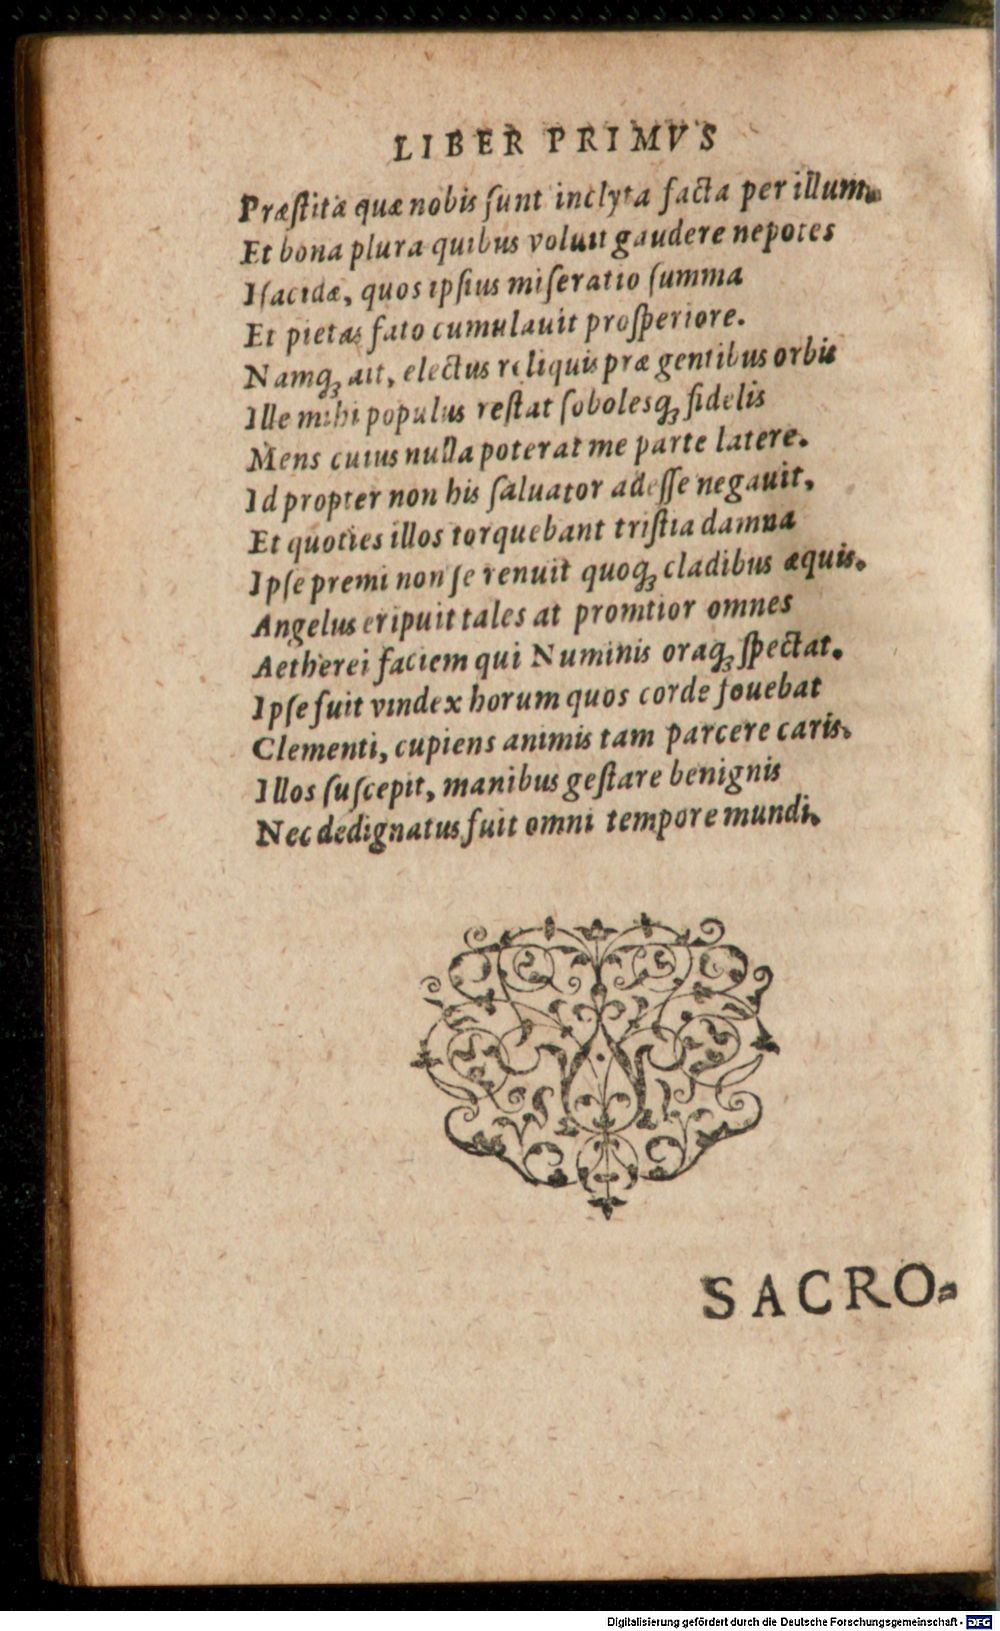 LIBER PRIMVS
Præſtita quæ nobis ſunt inclyta facta per illum.
Et bona plura quibus voluit gaudere nepotes
Iſacidæ, quos ipſius miſeratio ſumma
Et pietas fato cumulauit proſperiore.
Namq́ꝫ ait, electus reliquis præ gentibus orbis
Ille mihi populus reſtat ſobolesq́ꝫ fidelis
Mens cuius nulla poterat me parte latere.
Id propter non his ſaluator adeſſe negauit,
Et quoties illos torquebant triſtia damna
Ipſe premi non ſe renuit quoq́ꝫ cladibus æquis.
Angelus eripuit tales at promtior omnes
Aetherei faciem qui Numinis oraq́ꝫ ſpectat.
Ipſe fuit vindex horum quos corde fouebat
Clementi, cupiens animis tam parcere caris.
Illos ſuſcepit, manibus geſtare benignis
Nec dedignatus fuit omni tempore mundi.
SACRO-
Digitalisierung gefördert durch die Deutsche Forschungsgemeinschaft - DFG